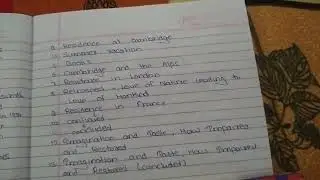 3. Residence at Cambridge
4. Summer Vacation
5. Books
6. Cambridge and the Alps
7. Residence in London
8. Retrospect, Love of Nature leading to
Love of Mankind
9. Residence in France
10. continued
11. concluded
12. Imagination and Taste, How Impaired
and Restored
13. Imagination and Taste, How Impaired
and Restored (concluded)